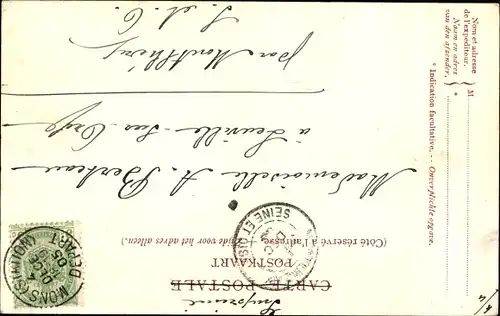 Imprimé
CARTE POSTALE
POSTKAART
(Côté réservé à l'adresse. — Zijde voor het adres alleen.)
Mademoiselle A. Berteau
à Leuville sur Orge
par Montlhéry
S. et O.
Nom et adresse
de l'expéditeur.
Naam en adres
van den afzender.
M
*
* Indication facultative. — Onverplichte opgave.
MONS (STATION)
DEPART
SEINE ET OISE